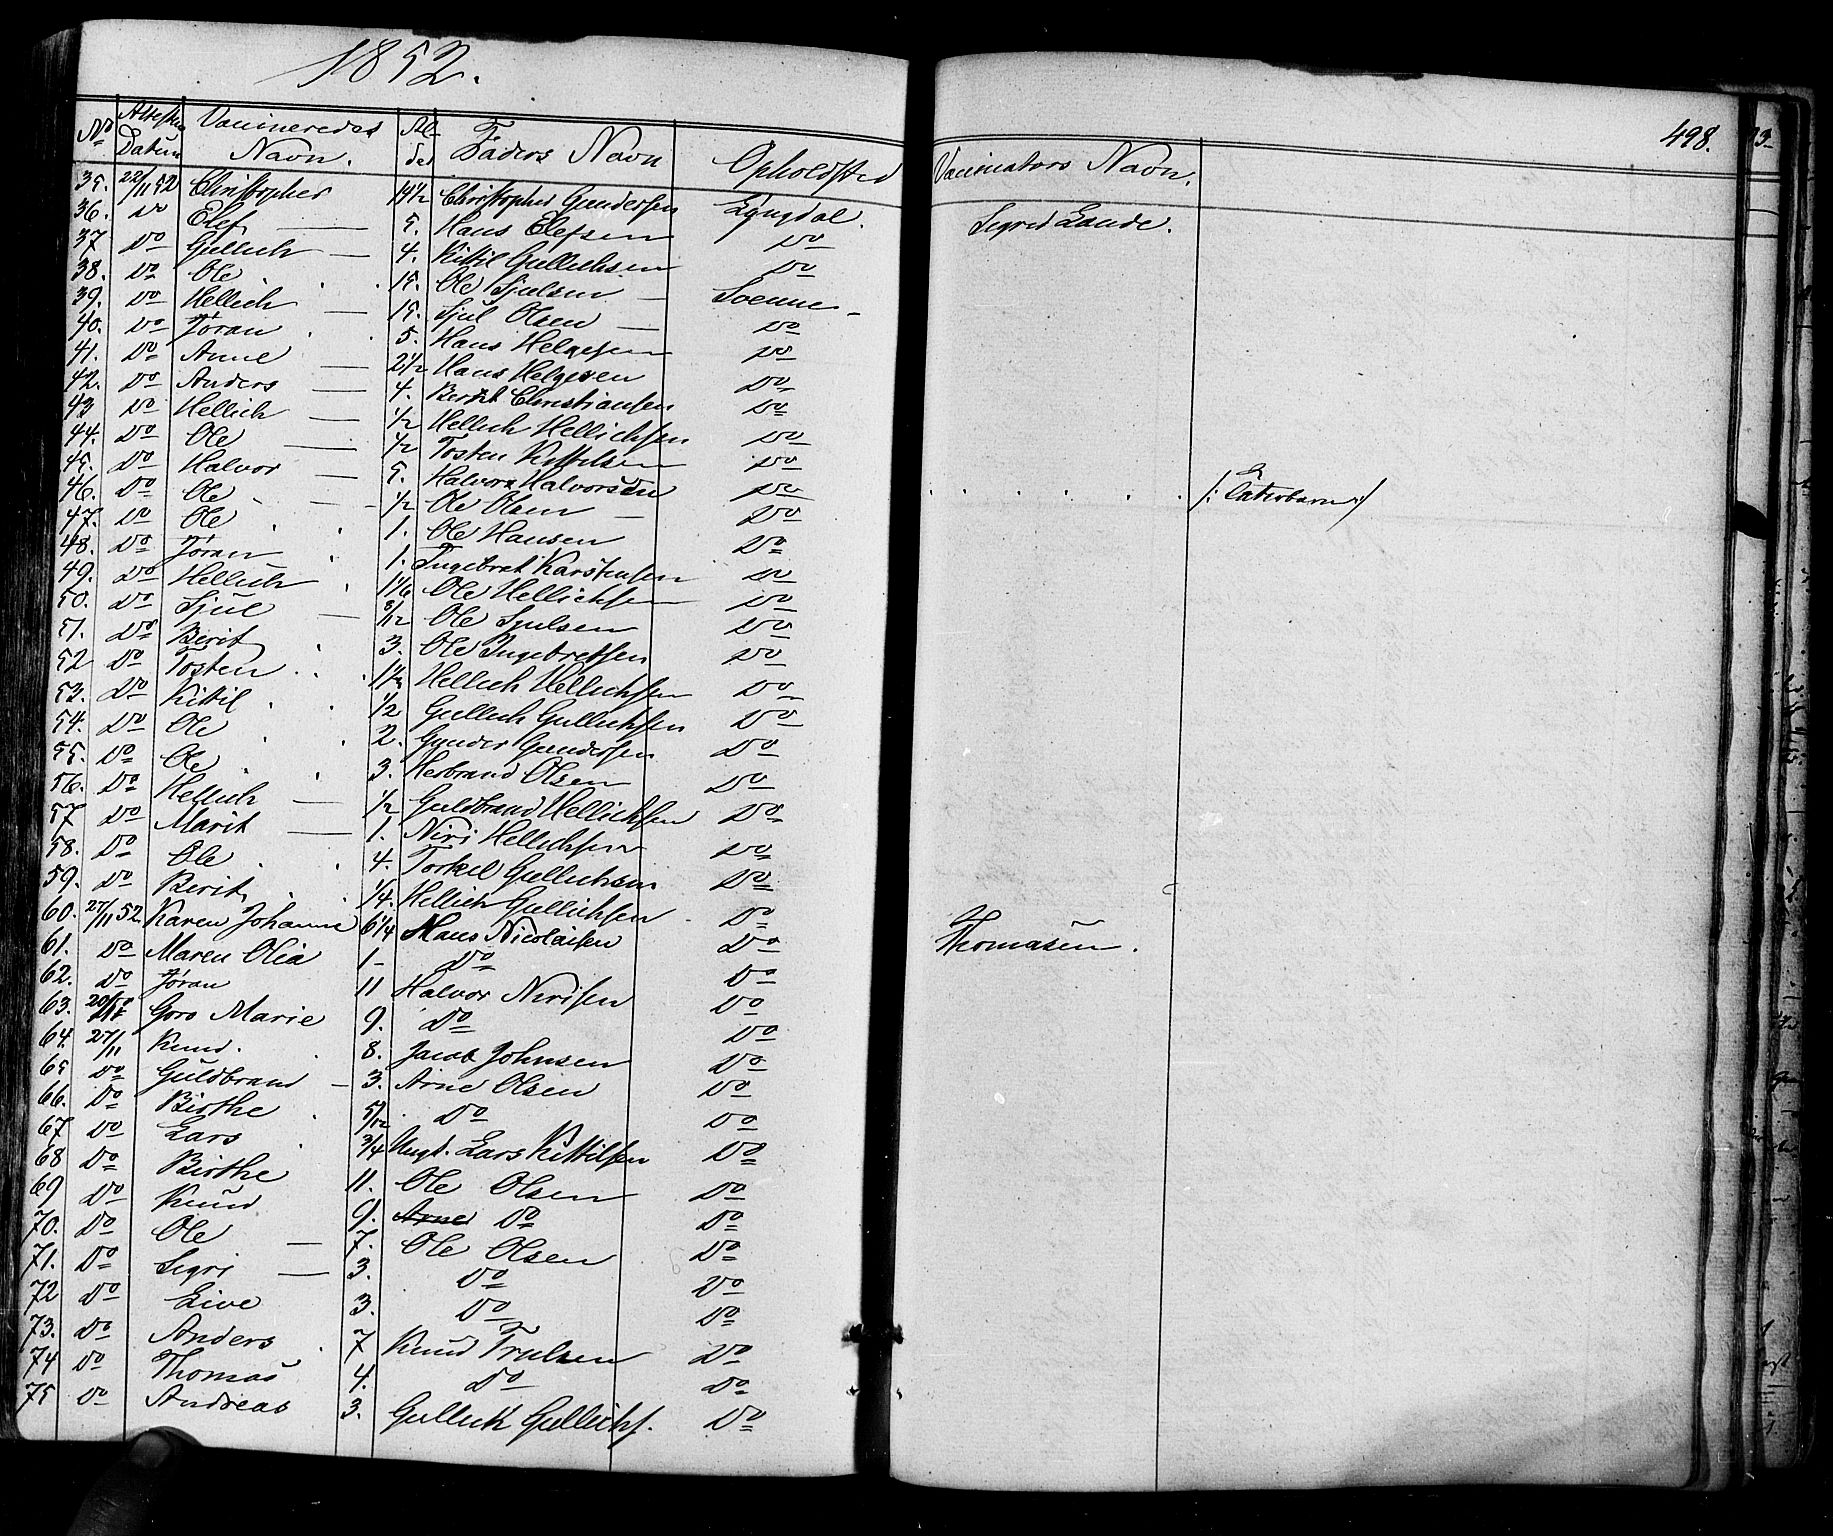 1852.
498.
No Attestens Datum Vaccineredes Navn. Alder Faders Navn Opholdsted Vaccinators Navn.
35. 22/11 52 Christopher 14 1/2 Christopher Gundersen Eggedal. Sigrid Lande.
36. Do Elef — 5. Hans Elefsen Do
37. Do Gullich — 4. Kittil Gullichsen Do
38. Do Ole 15. Ole Sjulsen — Soenne
39. Do Hellich — 15. Sjul Olsen — Do
40. Do Jøran 5. Hans Helgesen Do
41. Do Anne — 2 1/2 Hans Helgesen Do
42. Do Anders — 4. Berth Christiansen Do
43 Do Hellich — 1/2 Hellich Hellichsen Do
44. Do Ole — 1/2 Tosten Kittilsen Do
45. Do Halvor — 5. Halvor Halvorsen Do
46. Do Ole 1/2 Ole Olsen — Do /: Taterbarn :/
47. Do Ole 1. Ole Hansen Do
48. Do Jøran 1. Ingebret Karstensen Do
49. Do Hellich 1 1/6 Ole Hellichsen Do
50. Do Sjul — 8/12 Ole Sjulsen Do
51. Do Berit 3. Ole Ingebretsen Do
52 Do Tosten Hellich Hellichsen Do
53. Do Kittil 1/2 Gullich Gullichsen Do
54. Do Ole 2. Gunder Gundersen Do
55. Do Ole 3. Herbrand Olsen Do
56. Do Hellich — 1/2 Guldbrand Hellichsen Do
57 Do Marit — 1. Niri Hellichsen Do
58. Do Ole 4. Torkel Gullichsen Do
59. Do Berit 1/4 Hellich Gullichsen Do
60. 27/11 52. Karen Johanne 6 1/4 Hans Nicolaisen Do Thomasen.
61. Do Maren Olia 1- Do Do
62. Do Jøran 11 Halvor Nirisen Do
63. Goro Marie 9. Do Do
64. 27/11 Knud. 8. Jacob Johnsen Do
65 Do Guldbrand — 3. Arne Olsen Do
66. Do Birthe 5/12 Do Do
67 Do Lars 3/4 Ungk. Lars Kittilsen Do
68 Do Birthe 11. Ole Olsen Do
69 Do Knud 9. Arne Do Do
70. Do Ole — 7. Ole Olsen Do
71. Do Sigri — 3. Do Do
72 Do Live 3. Do Do
73. Do Anders 7 Knud Trulsen Do
74 Do Thomas 4. Do Do
75 Do Andreas 3. Gullick Gullichs. Do